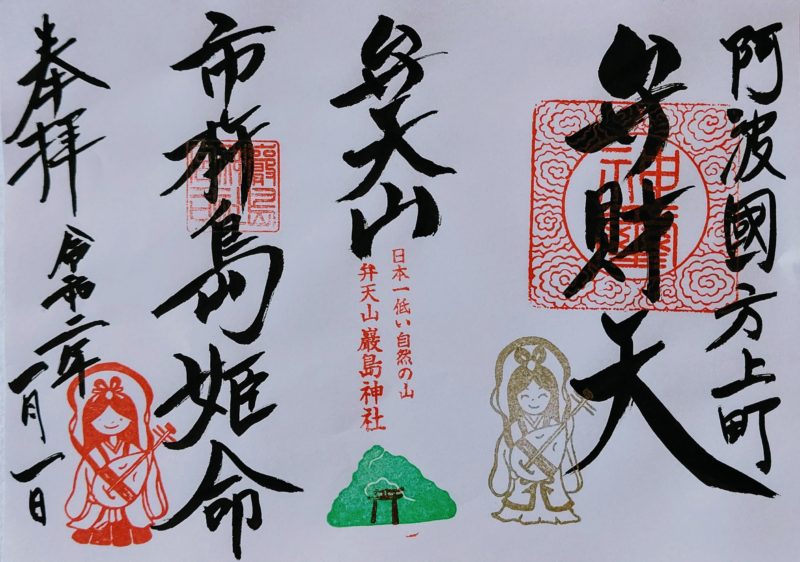 阿波國方上町
弁財天
弁天山
日本一低い自然の山
弁天山 巌島神社
市杵島姫命
奉拝
令和二年一月一日